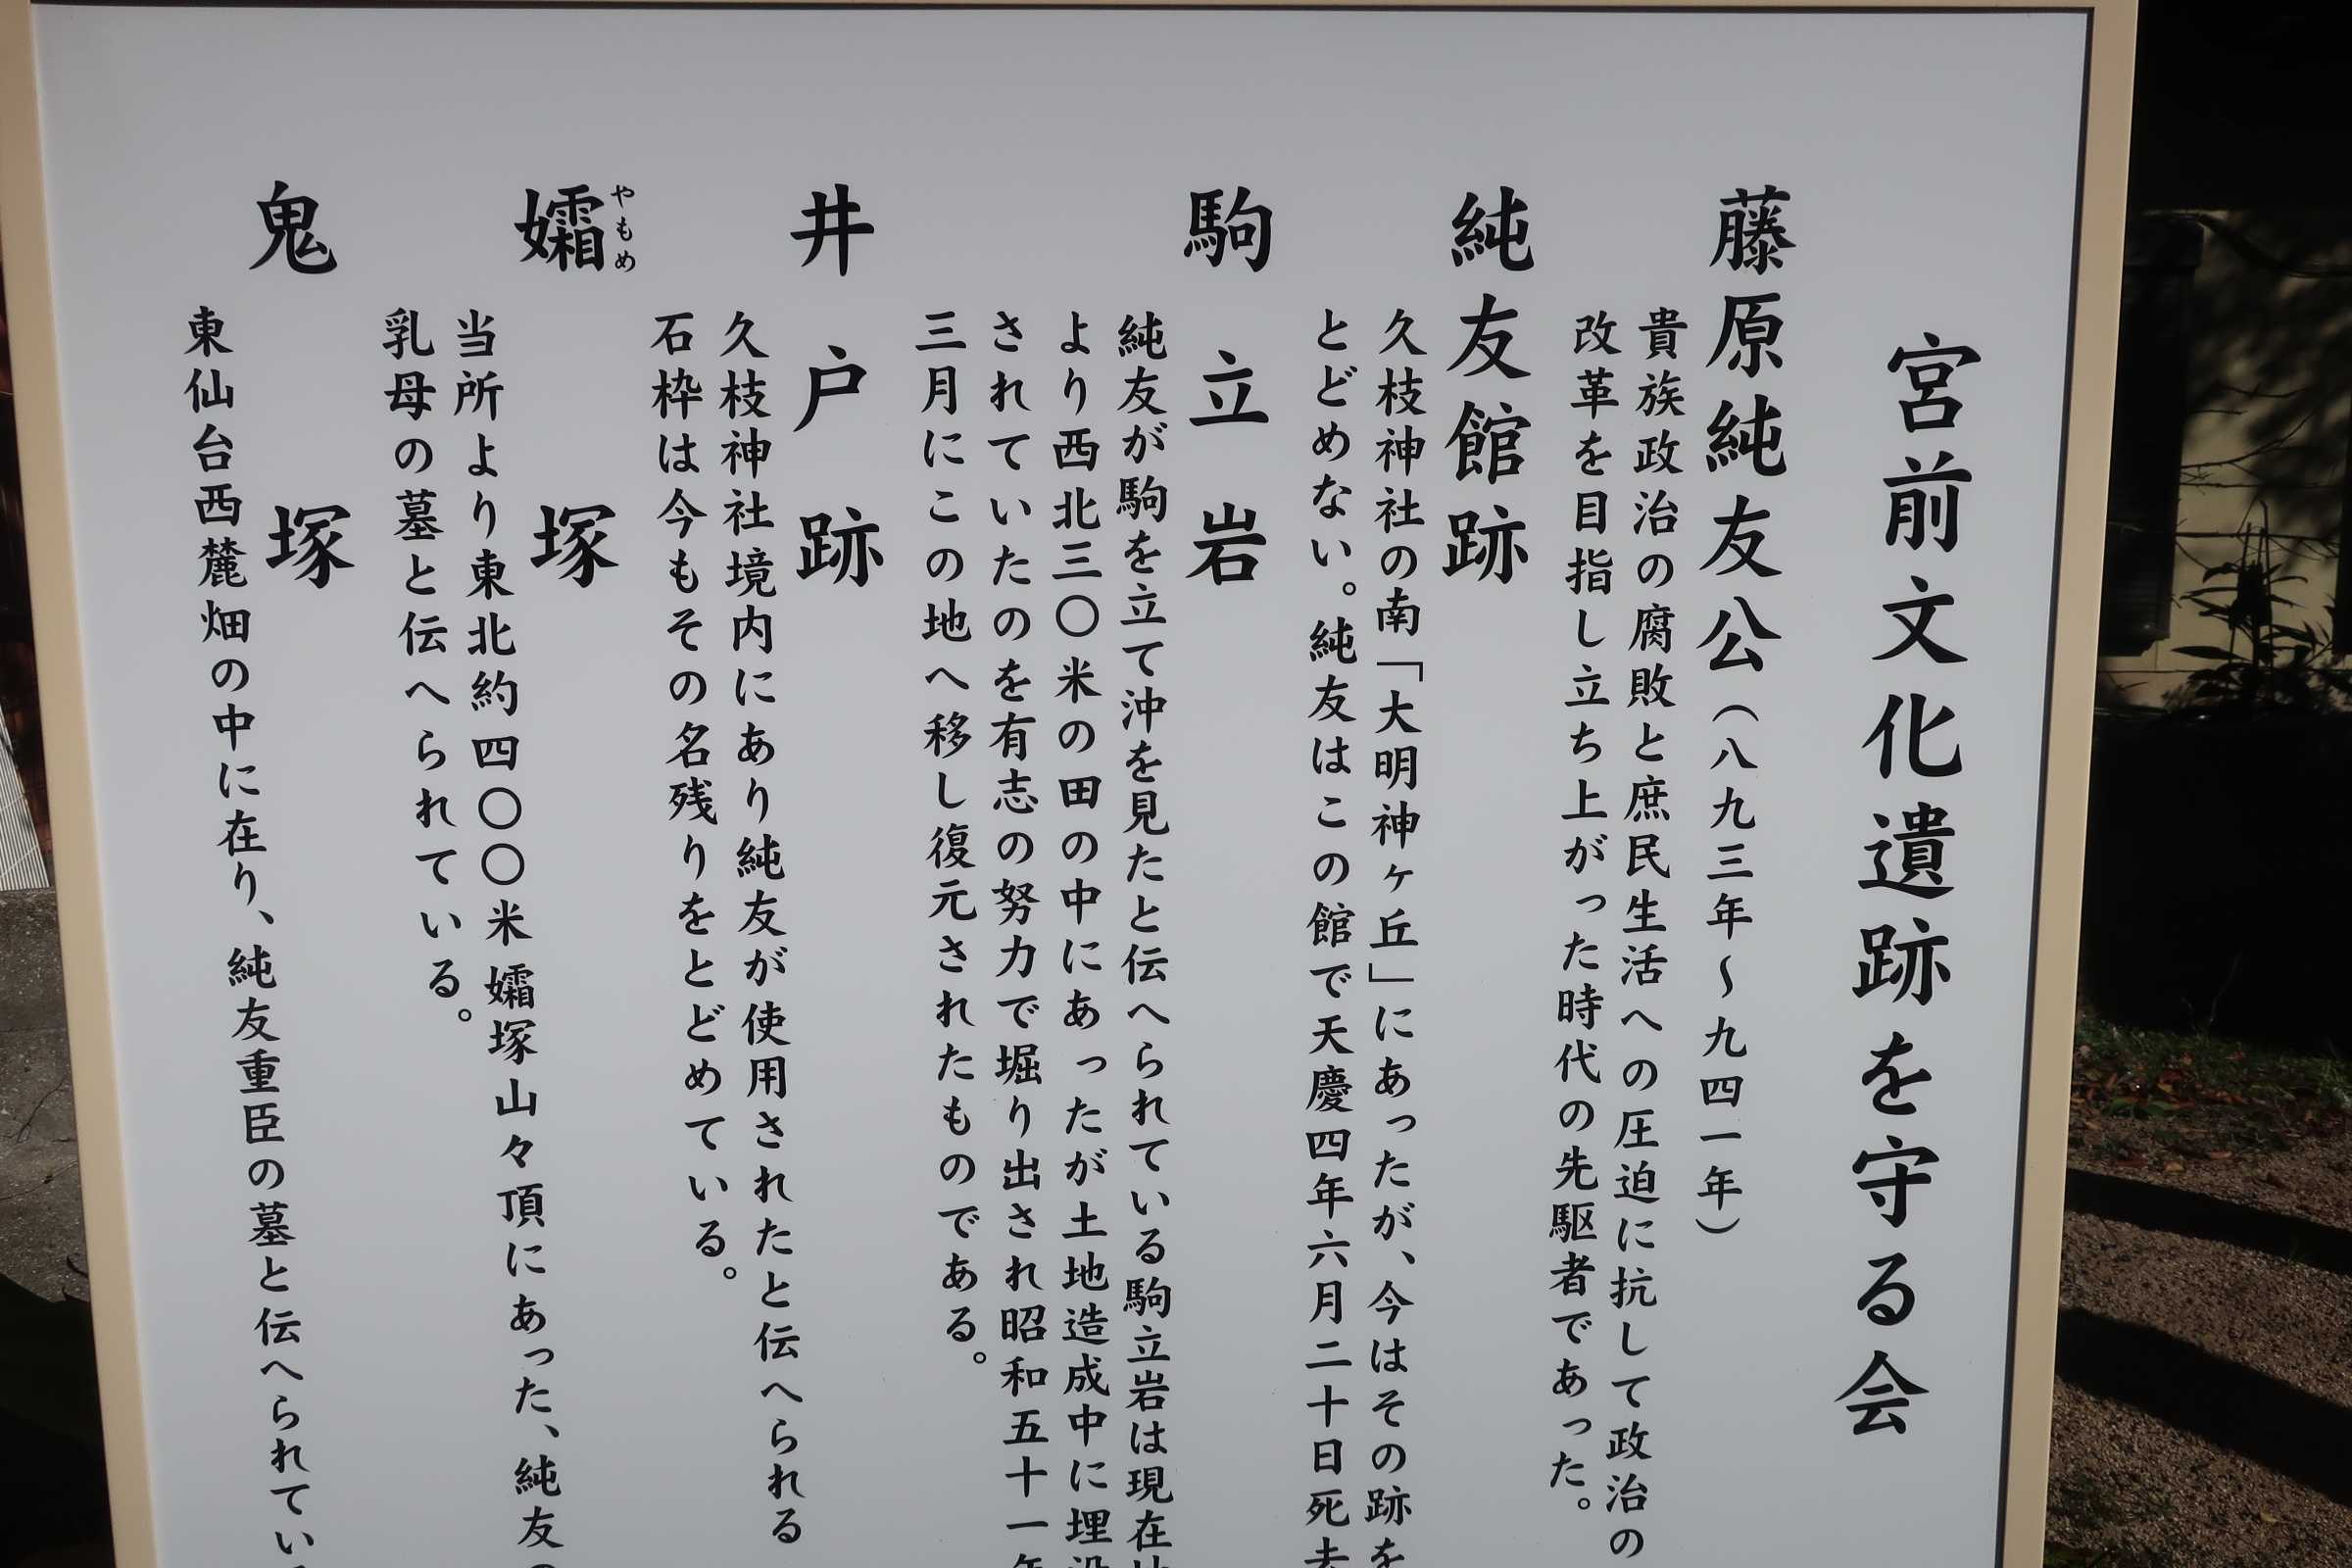 宮前文化遺跡を守る会
藤原純友公（八九三年～九四一年）
貴族政治の腐敗と庶民生活への圧迫に抗して政治の
改革を目指し立ち上がった時代の先駆者であった。
純友館跡
久枝神社の南「大明神ヶ丘」にあったが、今はその跡を
とどめない。純友はこの館で天慶四年六月二十日死去
駒立岩
純友が駒を立て沖を見たと伝へられている駒立岩は現在地
より西北三〇米の田の中にあったが土地造成中に埋没
されていたのを有志の努力で堀り出され昭和五十一年
三月にこの地へ移し復元されたものである。
井戸跡
久枝神社境内にあり純友が使用されたと伝へられる
石枠は今もその名残りをとどめている。
孀塚
やもめ
当所より東北約四〇〇米孀塚山々頂にあった、純友の
乳母の墓と伝へられている。
鬼塚
東仙台西麓畑の中に在り、純友重臣の墓と伝へられてい